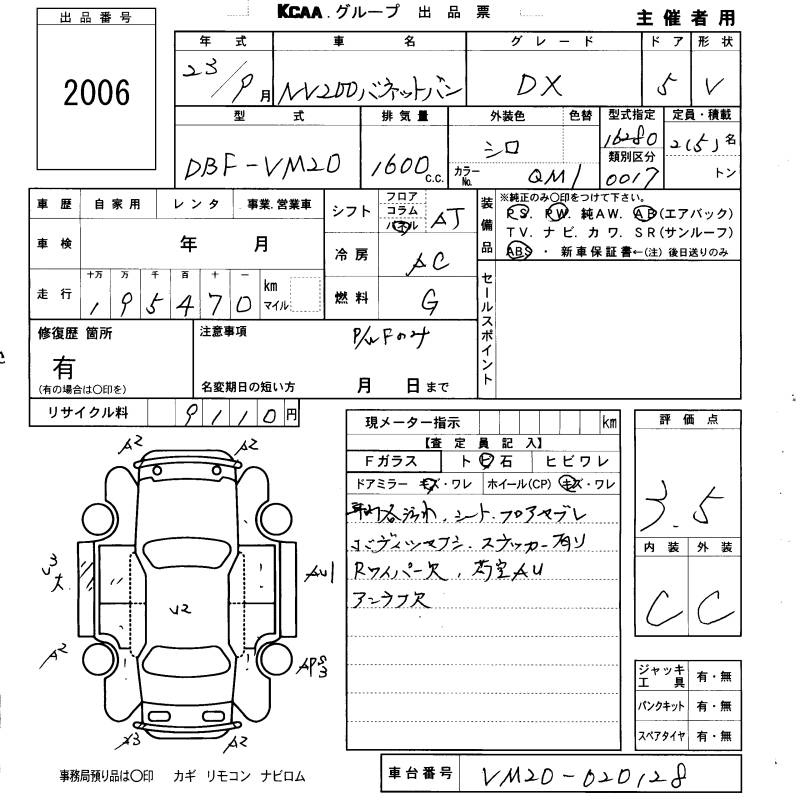 KCAA.グループ 出品票
主催者用
出品番号
2006
年式 車名 グレード ドア 形状
23/9月 NV200バネットバン DX 5 V
型式 排気量 外装色 色替 型式指定 定員・積載
DBF-VM20 1600 c.c. シロ 16280 2(5)名
カラーNo. QM1 類別区分 0017 トン
車歴 自家用 レンタ 事業.営業車
シフト フロア コラム パネル AT
車検 年 月
冷房 AC
走行 十万 万 千 百 十 一
195470 km マイル
燃料 G
装備品 ※純正のみ〇印をつけて下さい。
PS. PW. 純AW. AB(エアバック)
TV. ナビ. カワ. SR(サンルーフ)
ABS ・ 新車保証書←(注) 後日送りのみ
セールスポイント
修復歴 箇所
有
(有の場合は〇印を)
注意事項 P/W Fのみ
名変期日の短い方 月 日まで
リサイクル料 9110円
現メーター指示 km
【査定員記入】
Fガラス ト ビ 石 ヒビワレ
ドアミラー キズ・ワレ ホイール(CP) キズ・ワレ
シート.フロアヤブレ
ステッカー有リ
Rワイパー欠.
アンテナ欠
評価点
3.5
内装 外装
C C
A2 A2
AU1
U2
A2
A2
ジャッキ工具 有・無
パンクキット 有・無
スペアタイヤ 有・無
事務局預り品は〇印 カギ リモコン ナビロム
車台番号 VM20-020128